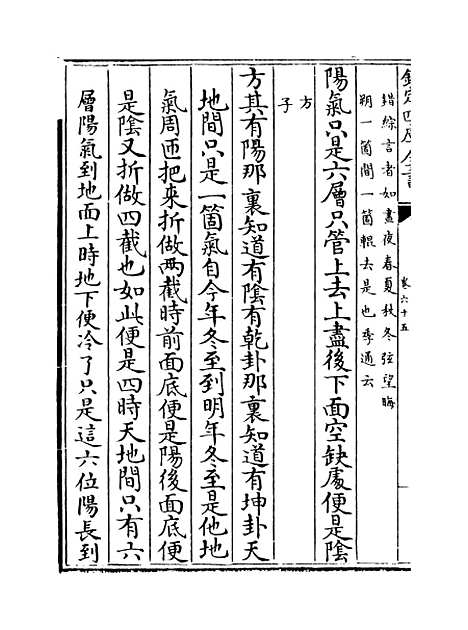 欽定四庫全書
卷六十五
錯綜言者如晝夜春夏秋冬弦望晦
朔一箇間一箇輥去是也季通云
陽氣只是六層只管上去上盡後下面空缺處便是陰
方子
方其有陽那裏知道有陰有乾卦那裏知道有坤卦天
地間只是一箇氣自今年冬至到明年冬至是他地
氣周匝把來折做兩截時前面底便是陽後面底便
是陰又折做四截也如此便是四時天地間只有六
層陽氣到地面上時地下便冷了只是這六位陽長到